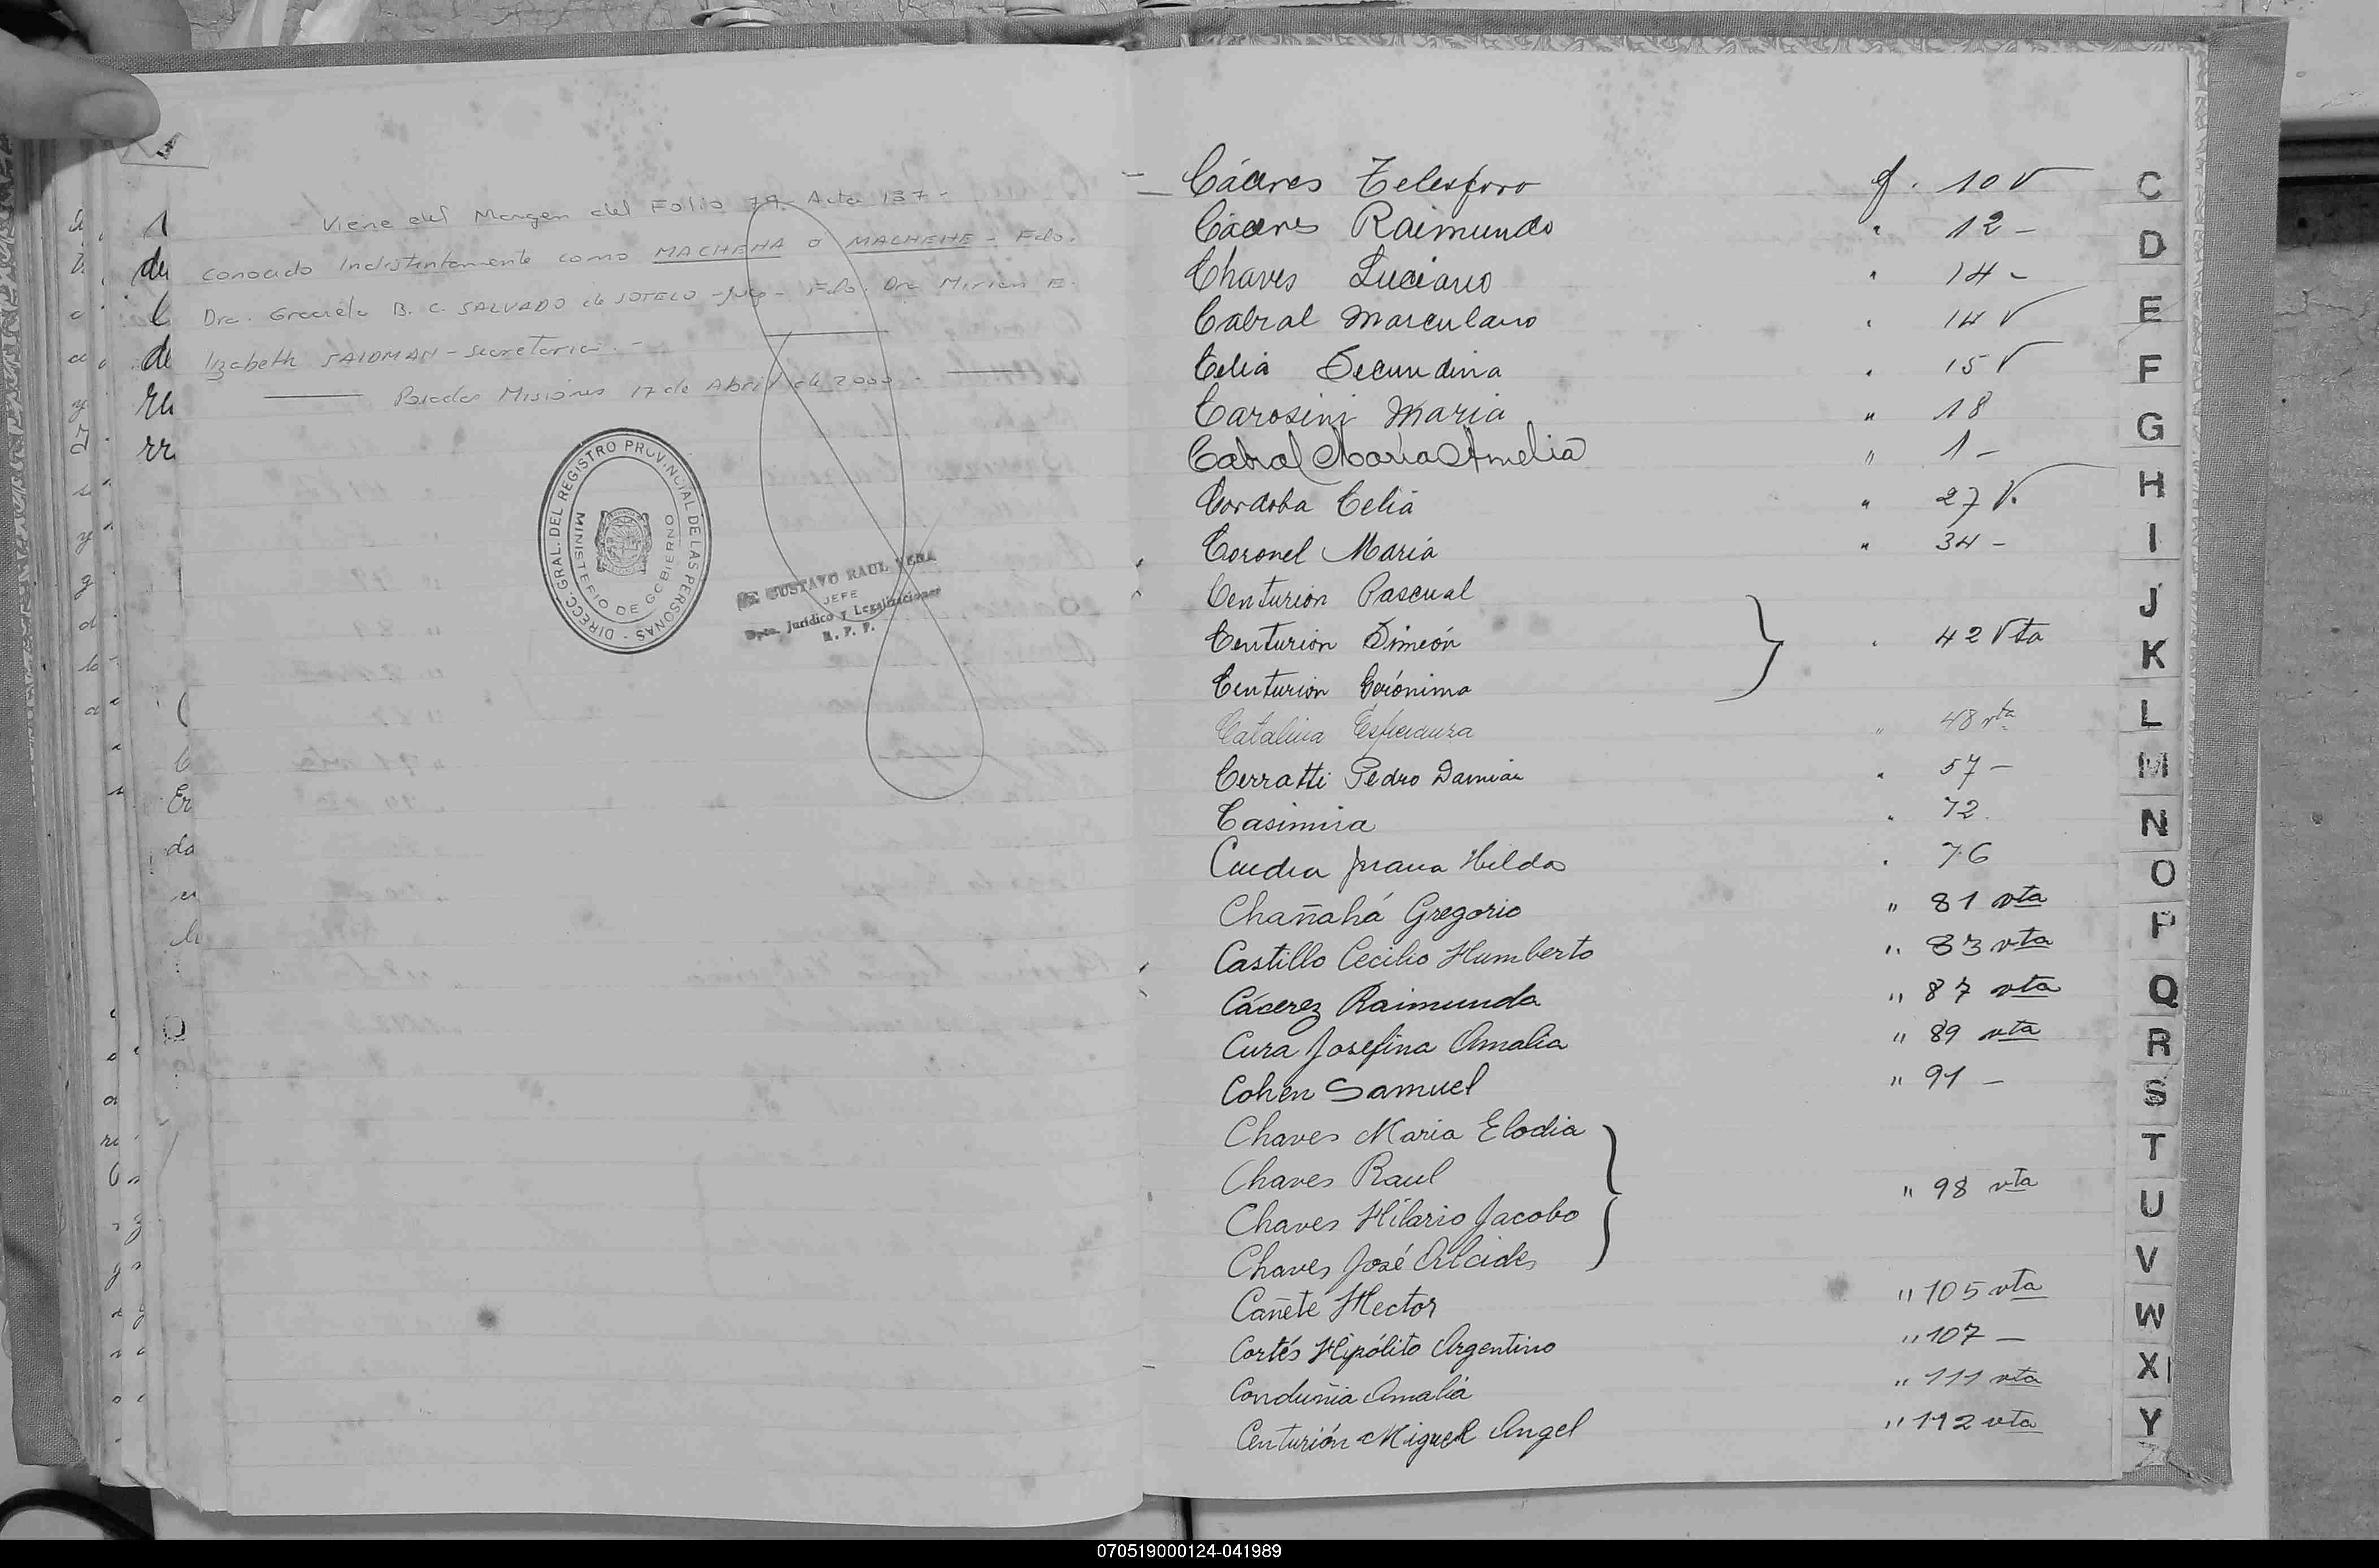 Viene del Margen del Folio 79- Acta 137-
conocido Indistintamente como MACHEHA O MACHEHE - Fdo.
Dra. Graciela B. C. SALVADO de SOTELO - Juez - Fdo. Dra Miriam E.
lizabeth SAIDMAN - Secretaria. -
Posadas Misiones 17 de Abril de 2000.
DIRECC. GRAL. DEL REGISTRO PROVINCIAL DE LAS PERSONAS
MINISTERIO DE GOBIERNO
GUSTAVO RAUL VERA
JEFE
Dpto. Jurídico y Legalizaciones
R. P. P.
Cáceres Telesforo f. 10 V
Cáceres Raimundo " 12 -
Chaves Luciano " 14 -
Cabral Marculano " 14 V
Celia Secundina " 15 V
Carosini Maria " 18
Cabral María Amelia " 1 -
Cordoba Celia " 27 V.
Coronel María " 34 -
Centurion Pascual
Centurion Simeón " 42 Vta
Centurion Gerónima
Catalina " 48 vta
Cerratti Pedro Damian " 57 -
Casimira " 72
Juana Hilda " 76
Chañahá Gregorio " 81 vta
Castillo Cecilio Humberto " 83 vta
Cácerez Raimunda " 87 vta
Cura Josefina Amalia " 89 vta
Cohen Samuel " 91 -
Chaves Maria Elodia
Chaves Raul " 98 vta
Chaves Hilario Jacobo
Chaves José Alcides
Cañete Hector " 105 vta
Cortés Hipólito Argentino " 107 -
Conduñia Amalia " 111 vta
Centurión Miguel Angel " 112 vta
C
D
E
F
G
H
I
J
K
L
M
N
O
P
Q
R
S
T
U
V
W
X
Y
Z
070519000124-041989